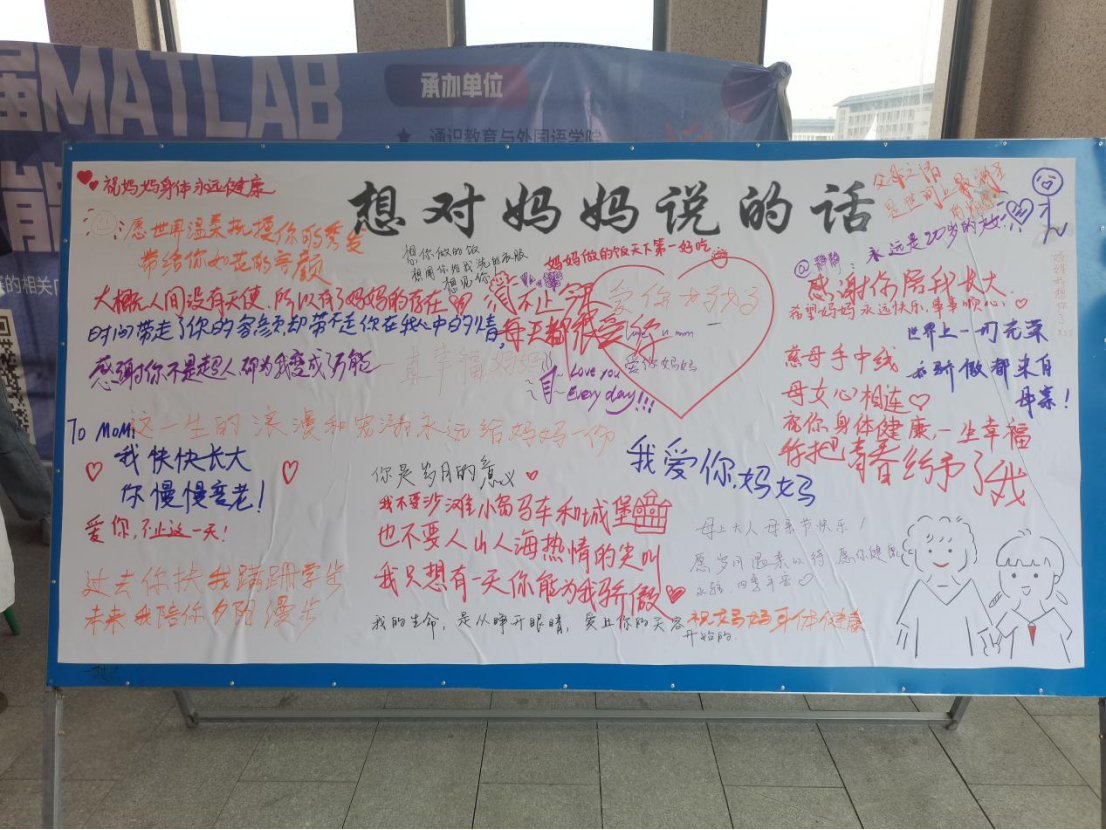 届MATLAB
承办单位
通识教育与外国语学院
的相关
想对妈妈说的话
祝妈妈身体永远健康
愿世界温柔抚摸你的秀发
带给你如花的容颜
想你做的饭
想用你给我洗的衣服
想见你
妈妈做的饭天下第一好吃
父母之情
是世间上最
永远是20岁的
大概人间没有天使，所以有了妈妈的存在
不止今天
每天都很爱你
爱你妈妈
时间带走了你的容颜却带不走你在我心中的
感谢你不是超人，却为我变成万能
真幸福妈妈
爱你妈妈
I Love you
Every day!!!
感谢你陪我长大
希望妈妈永远快乐，事事顺心
世界上一切光荣
和骄傲都来自
母亲！
慈母手中线
母女心相连
祝你身体健康，一生幸福
你把青春给予了我
To Mom:
这一生的浪漫和宠溺永远给妈妈一份
我快快长大
你慢慢变老！
爱你，不止这一天！
过去你扶我蹒跚学步
未来我陪你夕阳漫步
你是岁月的意义
我不要沙滩小马车和城堡
也不要人山人海热情的尖叫
我只想有一天你能为我骄傲
我的生命，是从睁开眼睛，爱上你的
开始的
我爱你，妈妈
母上大人母亲节快乐！
愿岁月温柔以待 愿你健康
祝妈妈身体健康